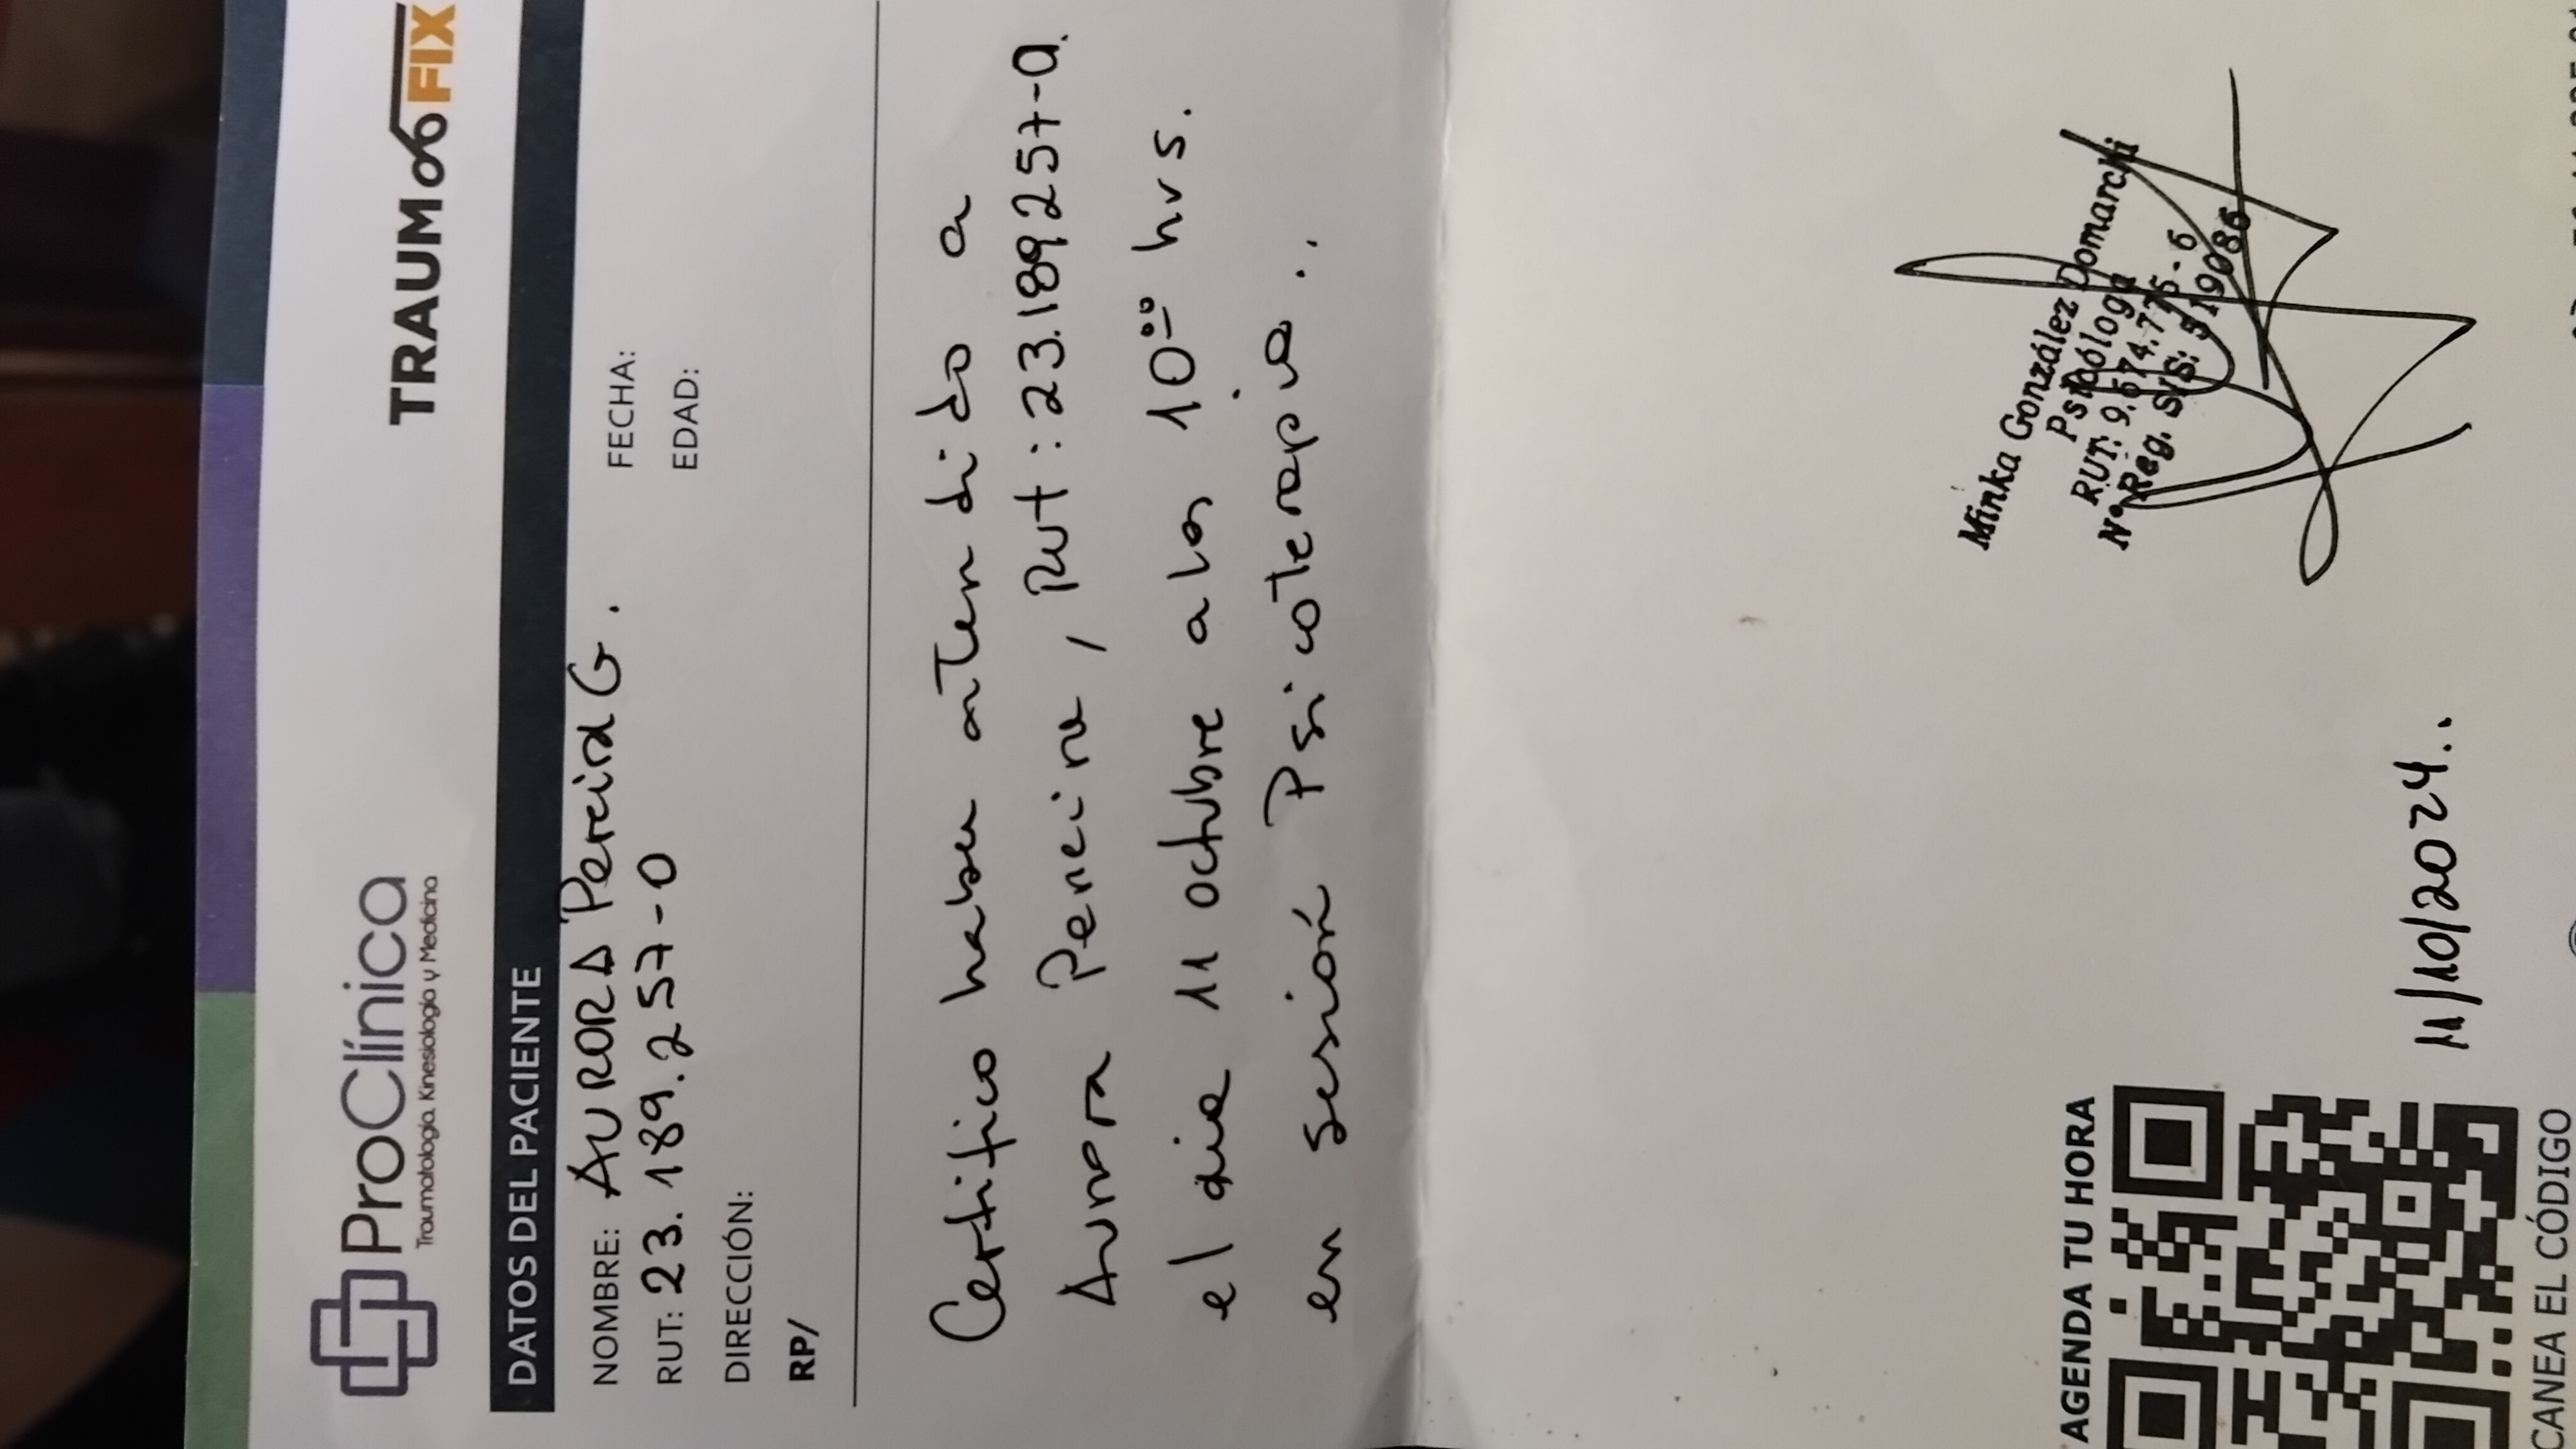 ProClínica
Traumatología, Kinesiología y Medicina
TRAUMAFIX
DATOS DEL PACIENTE
NOMBRE: AURORA Pereira G.
FECHA:
RUT: 23.189.257-0
EDAD:
DIRECCIÓN:
RP/
Certifico haber atendido a
Aurora Pereira, Rut: 23.189.257-0.
el dia 11 octubre a las 10:00 hrs.
en sesión Psicoterapia..
Minka González Domarchi
Psicóloga
RUT: 9.674.775-6
N° Reg. SIS: 319086
AGENDA TU HORA
11/10/2024..
CANEA EL CÓDIGO